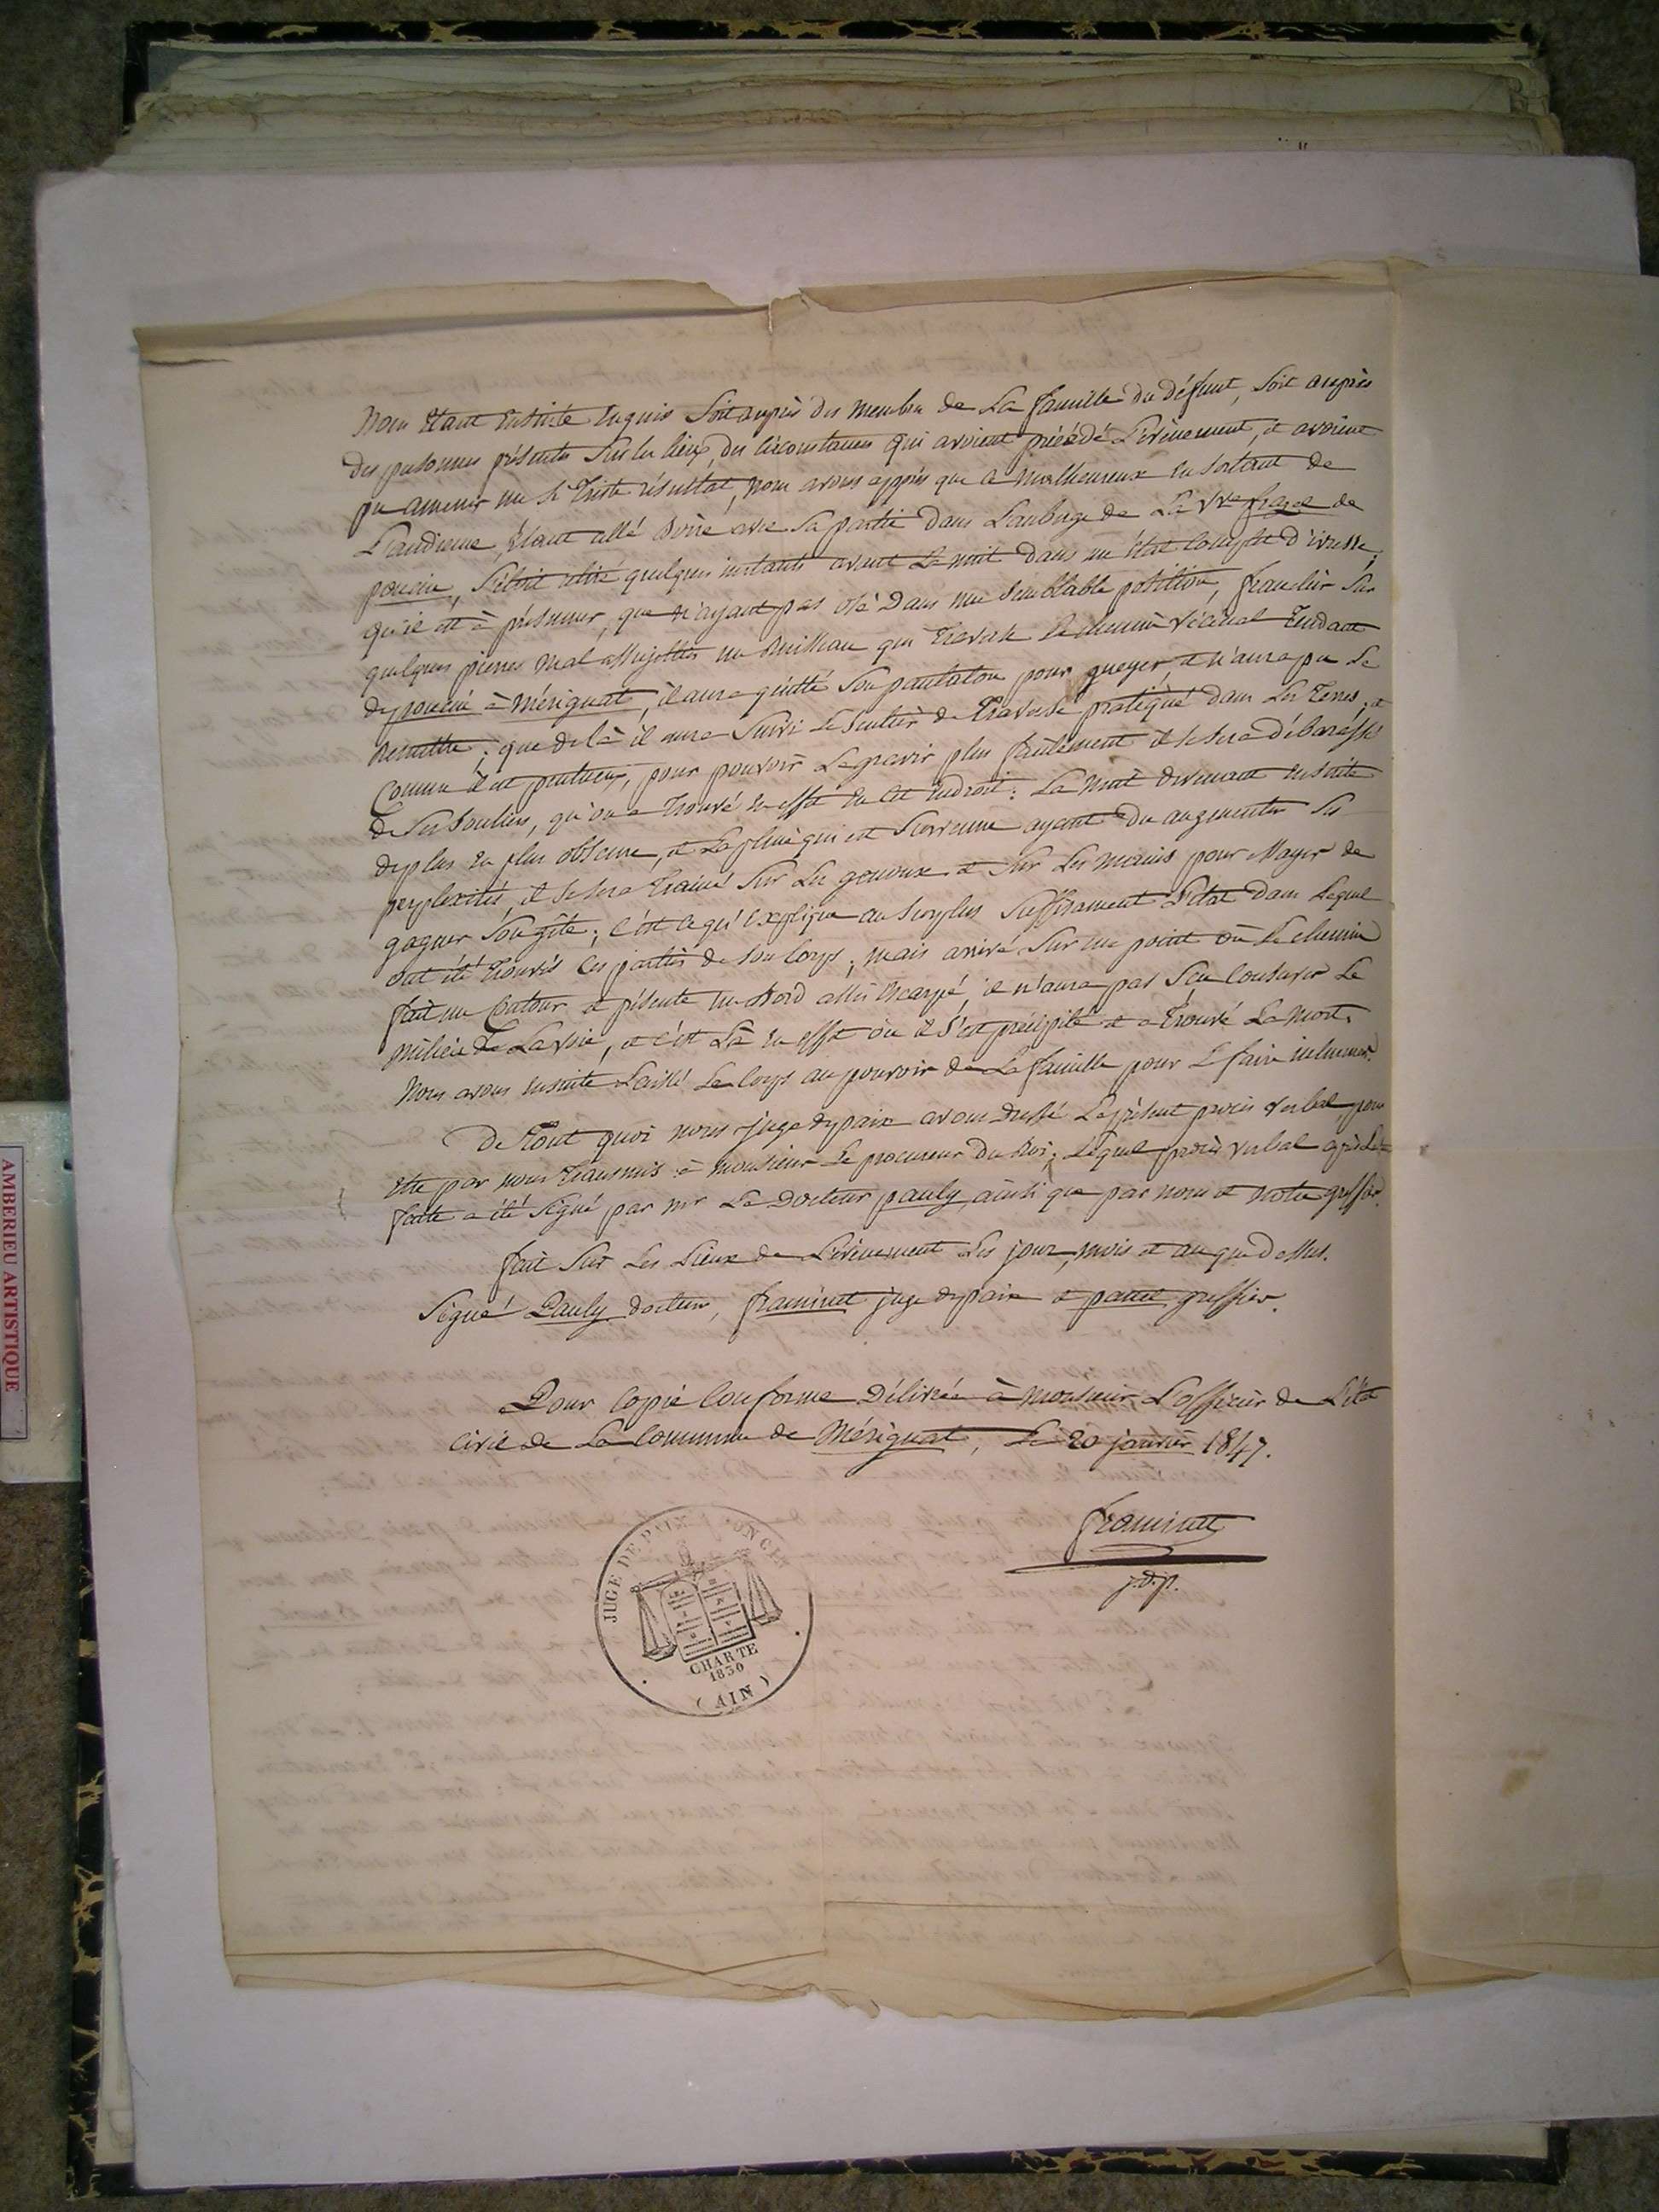 Nous étant ensuite enquis soit auprès des membres de la famille du défunt, soit auprès
des personnes présentes sur les lieux, des circonstances qui avoient précédé l'évènement, et avoient
pu amener un si triste résultat, nous avons appris que ce malheureux en sortant de
l'audience, étant allé boire avec sa partie dans l'auberge de la Vve de
poncin, s'étoit retiré quelques instants avant la nuit dans un état complet d'ivresse;
qu'il est à présumer, que n'ayant pas osé dans une semblable position, franchir sur
quelques pierres mal assujetties un ruisseau qui traverse le chemin vicinal tendant
de poncin à Mérignat, il aura quitté son pantalon pour gueyer, et n'aura pu le
remettre; que delà il aura suivi le sentier de traverse pratiqué dans les terres, et
comme il est pentueux, pour pouvoir le gravir plus facilement il se sera débarassé
de ses souliers, qu'on a trouvé en effet en cet endroit: La nuit devenant ensuite
de plus en plus obscure, et la pluie qui est survenue ayant du augmenter ses
perplexités, il se sera trainé sur les genoux et sur les mains pour essayer de
gagner son gîte; c'est ce qu'explique au surplus suffisament l'état dans lequel
ont été trouvés ces parties de son corps; mais arrivé sur un point où le chemin
fait un contour et présente un bord assez escarpé, il n'aura pas sçu conserver le
milieu de la voie, et c'est là en effet où il s'est précipité et a trouvé la mort.
Nous avons ensuite laissé le corps au pouvoir de la famille pour le faire inhumer.
De tout quoi nous juge de paix avons dressé le présent procès verbal, pour
être par nous transmis à monsieur le procureur du Roi; lequel procès verbal après lecture
faite a été signé par mr le Docteur pauly, ainsi que par nous et notre greffier.
fait sur les lieux de l'évènement les jour, mois et an que dessus.
Signé Pauly docteur, framinet juge de paix et greffier.
Pour copie conforme délivrée à monsieur l'officier de l'état
civil de la commune de Mérignat, le 20 janvier 1847.
framinet
j.d.p.
JUGE DE PAIX
CHARTE
1830
(AIN)
AMBERIEU ARTISTIQUE